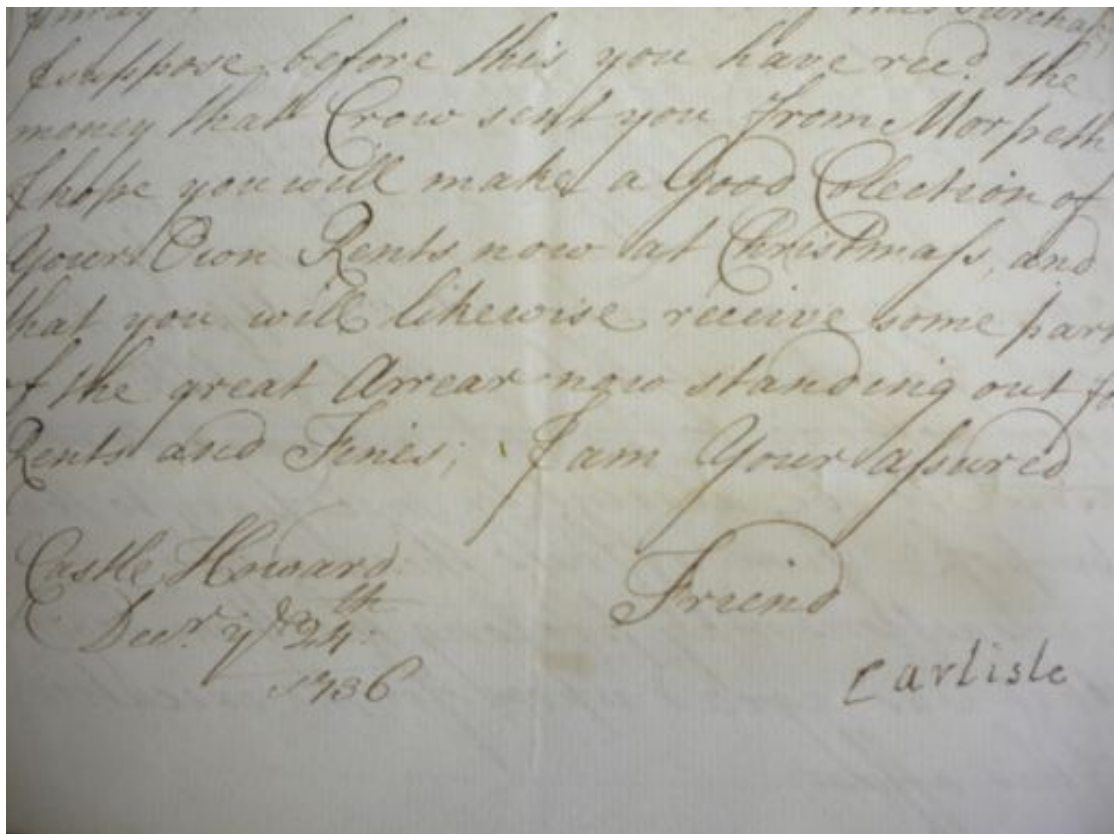 I suppose before this you have recd. the
money that Crow sent you from Morpeth
I hope you will make a Good Colection of
Your Own Rents now at Christmass, and
that you will likewise receive some part
of the great Arrear now standing out fo
Rents and Fines; I am Your assured
Friend
Castle Howard
Decr. ye 24th
1736
Carlisle